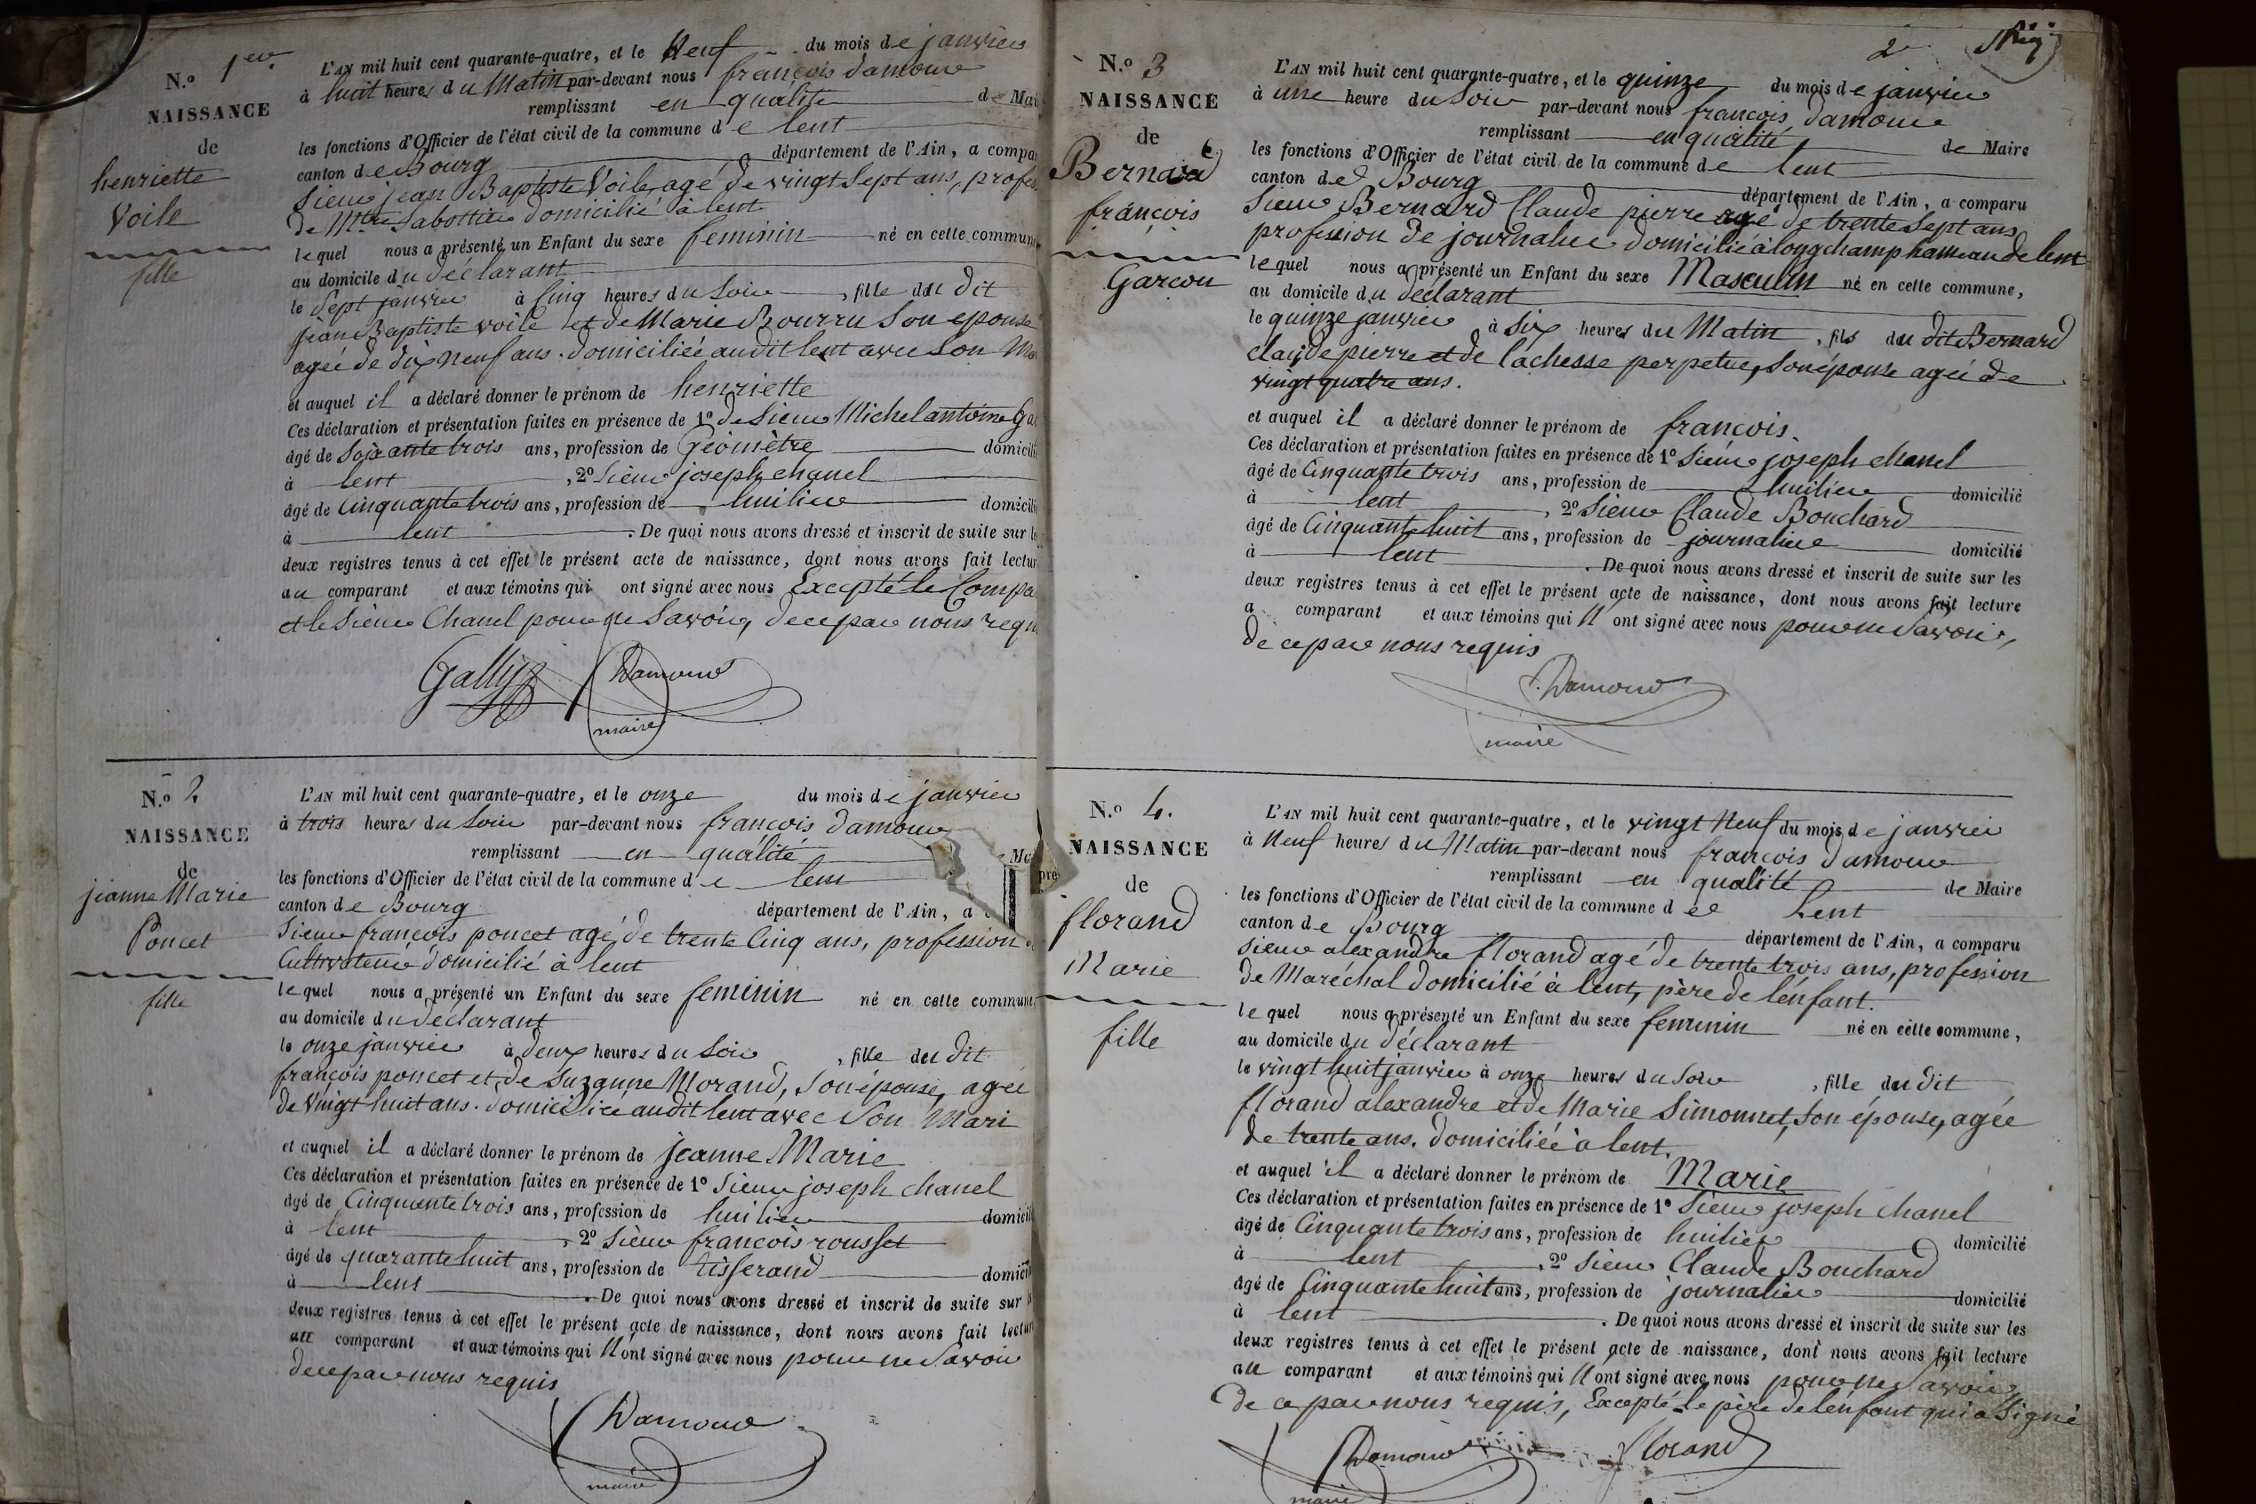 N.o 1er
NAISSANCE
de
henriette
Voile
fille
L'AN mil huit cent quarante-quatre, et le Neuf du mois de janvier
à huit heures du Matin par-devant nous françois damour
remplissant en qualité de Mai
les fonctions d'Officier de l'état civil de la commune de lent
canton de Bourg département de l'Ain, a compa
Sieur jean Baptiste Voile, agé de vingt Sept ans, profes
de Mtre Sabottier domicilié à lent
lequel nous a présenté un Enfant du sexe feminin né en cette commune
au domicile du déclarant
le Sept janvier à Cinq heures du Soir, fille du dit
jean Baptiste voile et de Marie Bourru Son epouse
agée de dix neuf ans. domiciliée audit lent avec Son Ma
et auquel il a déclaré donner le prénom de henriette
Ces déclaration et présentation faites en présence de 1o de Sieur Michel antoine Ga
âgé de Soixante trois ans, profession de Géomètre domicili
à lent, 2o Sieur joseph chanel
âgé de Cinquante trois ans, profession de huilier domicili
à lent. De quoi nous avons dressé et inscrit de suite sur le
deux registres tenus à cet effet le présent acte de naissance, dont nous avons fait lectur
au comparant et aux témoins qui ont signé avec nous Excepté le Compa
et le Sieur Chanel pour ne Savoir, de ce par nous requ
Gally Damour
maire
N.o 2
NAISSANCE
de
jeanne Marie
Poncet
fille
L'AN mil huit cent quarante-quatre, et le onze du mois de janvier
à trois heures du Soir par-devant nous françois damour
remplissant en qualité Ma
les fonctions d'Officier de l'état civil de la commune de lent
canton de Bourg département de l'Ain, a
Sieur françois poncet agé de trente Cinq ans, profession
Cultivateur domicilié à lent
lequel nous a présenté un Enfant du sexe feminin né en cette commune
au domicile du déclarant
le onze janvier à deux heures du Soir, fille du dit
françois poncet et de Suzanne Morand, Son épouse, agée
de Vingt huit ans. domiciliée audit lent avec Son Mari
et auquel il a déclaré donner le prénom de jeanne Marie
Ces déclaration et présentation faites en présence de 1o Sieur joseph chanel
âgé de Cinquante trois ans, profession de huilier domicili
à lent, 2o Sieur françois rousset
âgé de quarante huit ans, profession de tisserand domicili
à lent. De quoi nous avons dressé et inscrit de suite sur
deux registres tenus à cet effet le présent acte de naissance, dont nous avons fait lectur
au comparant et aux témoins qui N ont signé avec nous pour ne Savoir
de ce par nous requis
Damour
maire
pre
2
N.o 3
NAISSANCE
de
Bernard
françois
Garcon
L'AN mil huit cent quarante-quatre, et le quinze du mois de janvier
à une heure du Soir par-devant nous françois damour
remplissant en qualité de Maire
les fonctions d'Officier de l'état civil de la commune de lent
canton de Bourg département de l'Ain, a comparu
Sieur Bernard Claude pierre agé de trente Sept ans
profession de journalier domicilié à longchamp hameau de lent
lequel nous a présenté un Enfant du sexe Masculin né en cette commune,
au domicile du déclarant
le quinze janvier à Six heures du Matin, fils du dit Bernard
claude pierre et de lachesse perpetue, Son épouse agée de
vingt quatre ans.
et auquel il a déclaré donner le prénom de françois.
Ces déclaration et présentation faites en présence de 1o Sieur joseph chanel
âgé de Cinquante trois ans, profession de huilier domicilié
à lent, 2o Sieur Claude Bouchard
âgé de Cinquante huit ans, profession de journalier domicilié
à lent. De quoi nous avons dressé et inscrit de suite sur les
deux registres tenus à cet effet le présent acte de naissance, dont nous avons fait lecture
a comparant et aux témoins qui N ont signé avec nous pour ne Savoir,
de ce par nous requis
Damour
maire
N.o 4.
NAISSANCE
de
florand
Marie
fille
L'AN mil huit cent quarante-quatre, et le vingt Neuf du mois de janvier
à Neuf heures du Matin par-devant nous françois damour
remplissant en qualité de Maire
les fonctions d'Officier de l'état civil de la commune de Lent
canton de Bourg département de l'Ain, a comparu
Sieur alexandre florand agé de trente trois ans, profession
de Maréchal domicilié à lent, père de lénfant.
lequel nous a présenté un Enfant du sexe feminin né en cette commune,
au domicile du déclarant
le vingt huit janvier à onze heures du Soir, fille du dit
florand alexandre et de Marie Simonnet, Son épouse, agée
de trente ans. domiciliée à lent.
et auquel il a déclaré donner le prénom de Marie
Ces déclaration et présentation faites en présence de 1o Sieur joseph chanel
âgé de Cinquante trois ans, profession de huilier domicilié
à lent, 2o Sieur Claude Bouchard
âgé de Cinquante huit ans, profession de journalier domicilié
à lent. De quoi nous avons dressé et inscrit de suite sur les
deux registres tenus à cet effet le présent acte de naissance, dont nous avons fait lecture
au comparant et aux témoins qui N ont signé avec nous pour ne Savoir
de ce par nous requis, Excepté le père de lenfant qui a Signé
Damour florand
maire